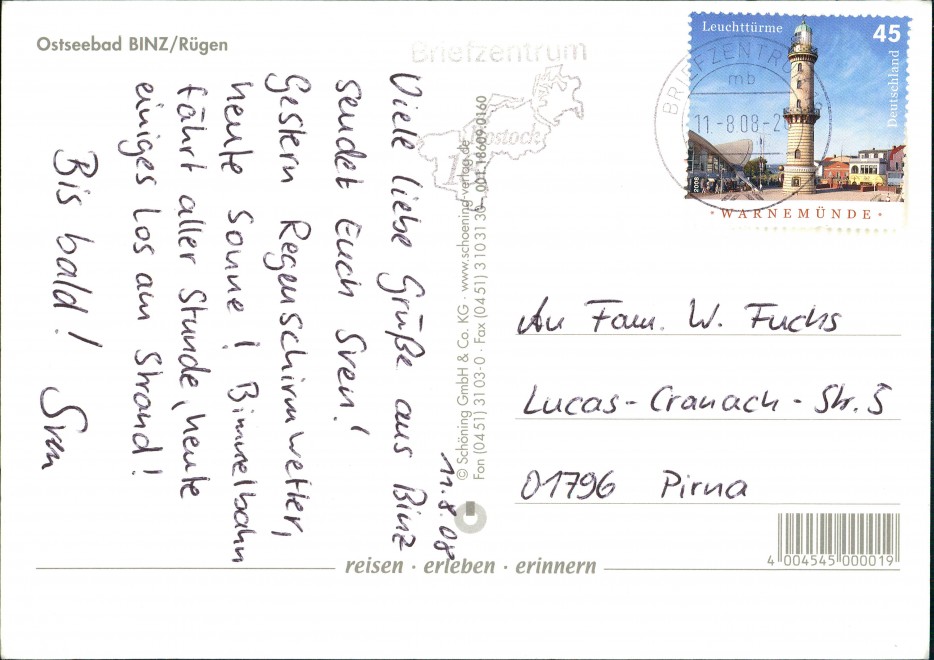 Ostseebad BINZ/Rügen
11.8.08
Viele liebe Grüße aus Binz
sendet Euch Sven!
Gestern Regenschirmwetter,
heute Sonne! Bimmelbahn
fährt aller Stunde, heute
einiges los am Strand!
Bis bald! Sven
Briefzentrum
Rostock
BRIEFZENTRUM
mb
11.-8.08-2
Leuchttürme
45
Deutschland
2008
WARNEMÜNDE
© Schöning GmbH & Co. KG · www.schoening-verlag.de
Fon (04 51) 31 03-0 · Fax (04 51) 3 10 31 30
An Fam. W. Fuchs
Lucas-Cranach-Str. 5
01796 Pirna
reisen · erleben · erinnern
4 004545 000019